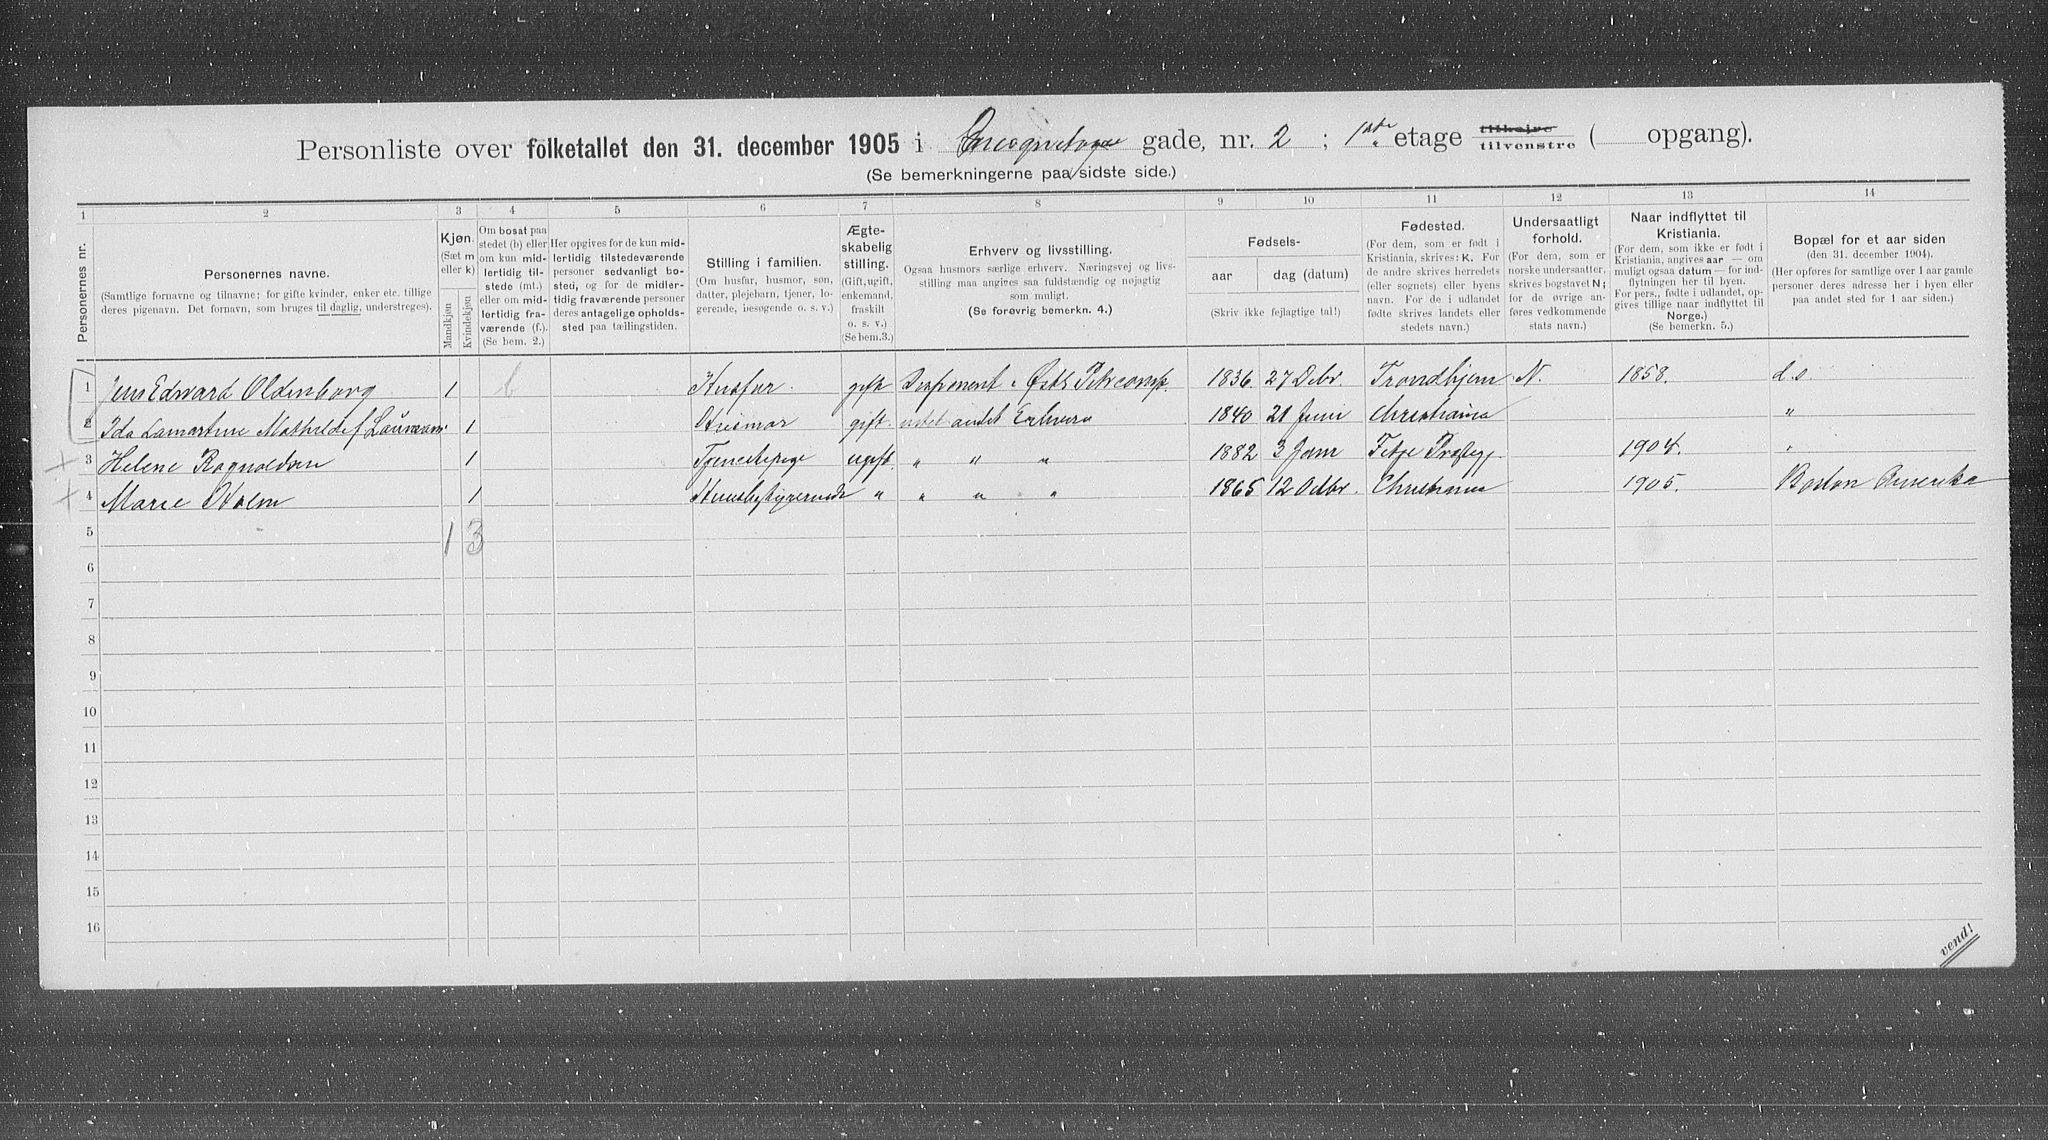 Personliste over folketallet den 31. december 1905 i Incognitogaden gade, nr. 2 ; 1ste etage tilhøire tilvenstre ( opgang).
(Se bemerkningerne paa sidste side.)
1 2 3 4 5 6 7 8 9 10 11 12 13 14
Personernes nr.
Personernes navne.
(Samtlige fornavne og tilnavne; for gifte kvinder, enker etc. tillige
deres pigenavn. Det fornavn, som bruges til daglig, understreges).
Kjøn.
(Sæt m
eller k)
Mandkjøn
Kvindekjøn
Om bosat paa
stedet (b) eller
om kun mid-
lertidig til-
stede (mt.)
eller om mid-
lertidig fra-
værende (f.).
(Se bem. 2.)
Her opgives for de kun mid-
lertidig tilstedeværende
personer sedvanligt bo-
sted, og for de midler-
tidig fraværende personer
deres antagelige opholds-
sted paa tællingstiden.
Stilling i familien.
(Om husfar, husmor, søn,
datter, plejebarn, tjener, lo-
gerende, besøgende o. s. v.)
Ægte-
skabelig
stilling.
(Gift, ugift,
enkemand,
fraskilt
o. s. v.)
(Se bem.3.)
Erhverv og livsstilling.
Ogsaa husmors særlige erhverv. Næringsvej og livs-
stilling maa angives saa fuldstændig og nøjagtig
som muligt.
(Se forøvrig bemerkn. 4.)
Fødsels-
aar
dag (datum)
(Skriv ikke fejlagtige tal!)
Fødested.
(For dem, som er født i
Kristiania, skrives: K. For
de andre skrives herredets
(eller sognets) eller byens
navn. For de i udlandet
fødte skrives landets eller
stedets navn.)
Undersaatligt
forhold.
(For dem, som er
norske undersaatter,
skrives bogstavet N;
for de øvrige an-
føres vedkommende
stats navn.)
Naar indflyttet til
Kristiania.
(For dem, som ikke er født i
Kristiania, angives aar — om
muligt ogsaa datum — for ind-
flytningen her til byen.
For pers., fødte i udlandet, op-
gives tillige naar indflyttet til
Norge.)
(Se bemerkn. 5.)
Bopæl for et aar siden
(den 31. december 1904).
(Her opføres for samtlige over 1 aar gamle
personer deres adresse her i byen eller
paa andet sted for 1 aar siden.)
1 Jens Edward Oldenborg 1 b Husfar. gift Disponent i Østl. Petr.comp. 1836 27 Debr. Trondhjem N. 1858. d.s.
2 Ida Lamartine Mathilde f Laumann 1 Husmor gift. intet andet Erhverv 1840 21 Juni Christiania "
3 Helene Ragnvaldsen 1 Tjenestepige ugift. " " " 1882 3 Jan Prestegj. 1904. "
4 Marie Holm 1 Husbestyrerinde " " " " 1865 12 Octbr. Christiania 1905. Boston Amerika
5 1 3
6
7
8
9
10
11
12
13
14
15
16
vend!